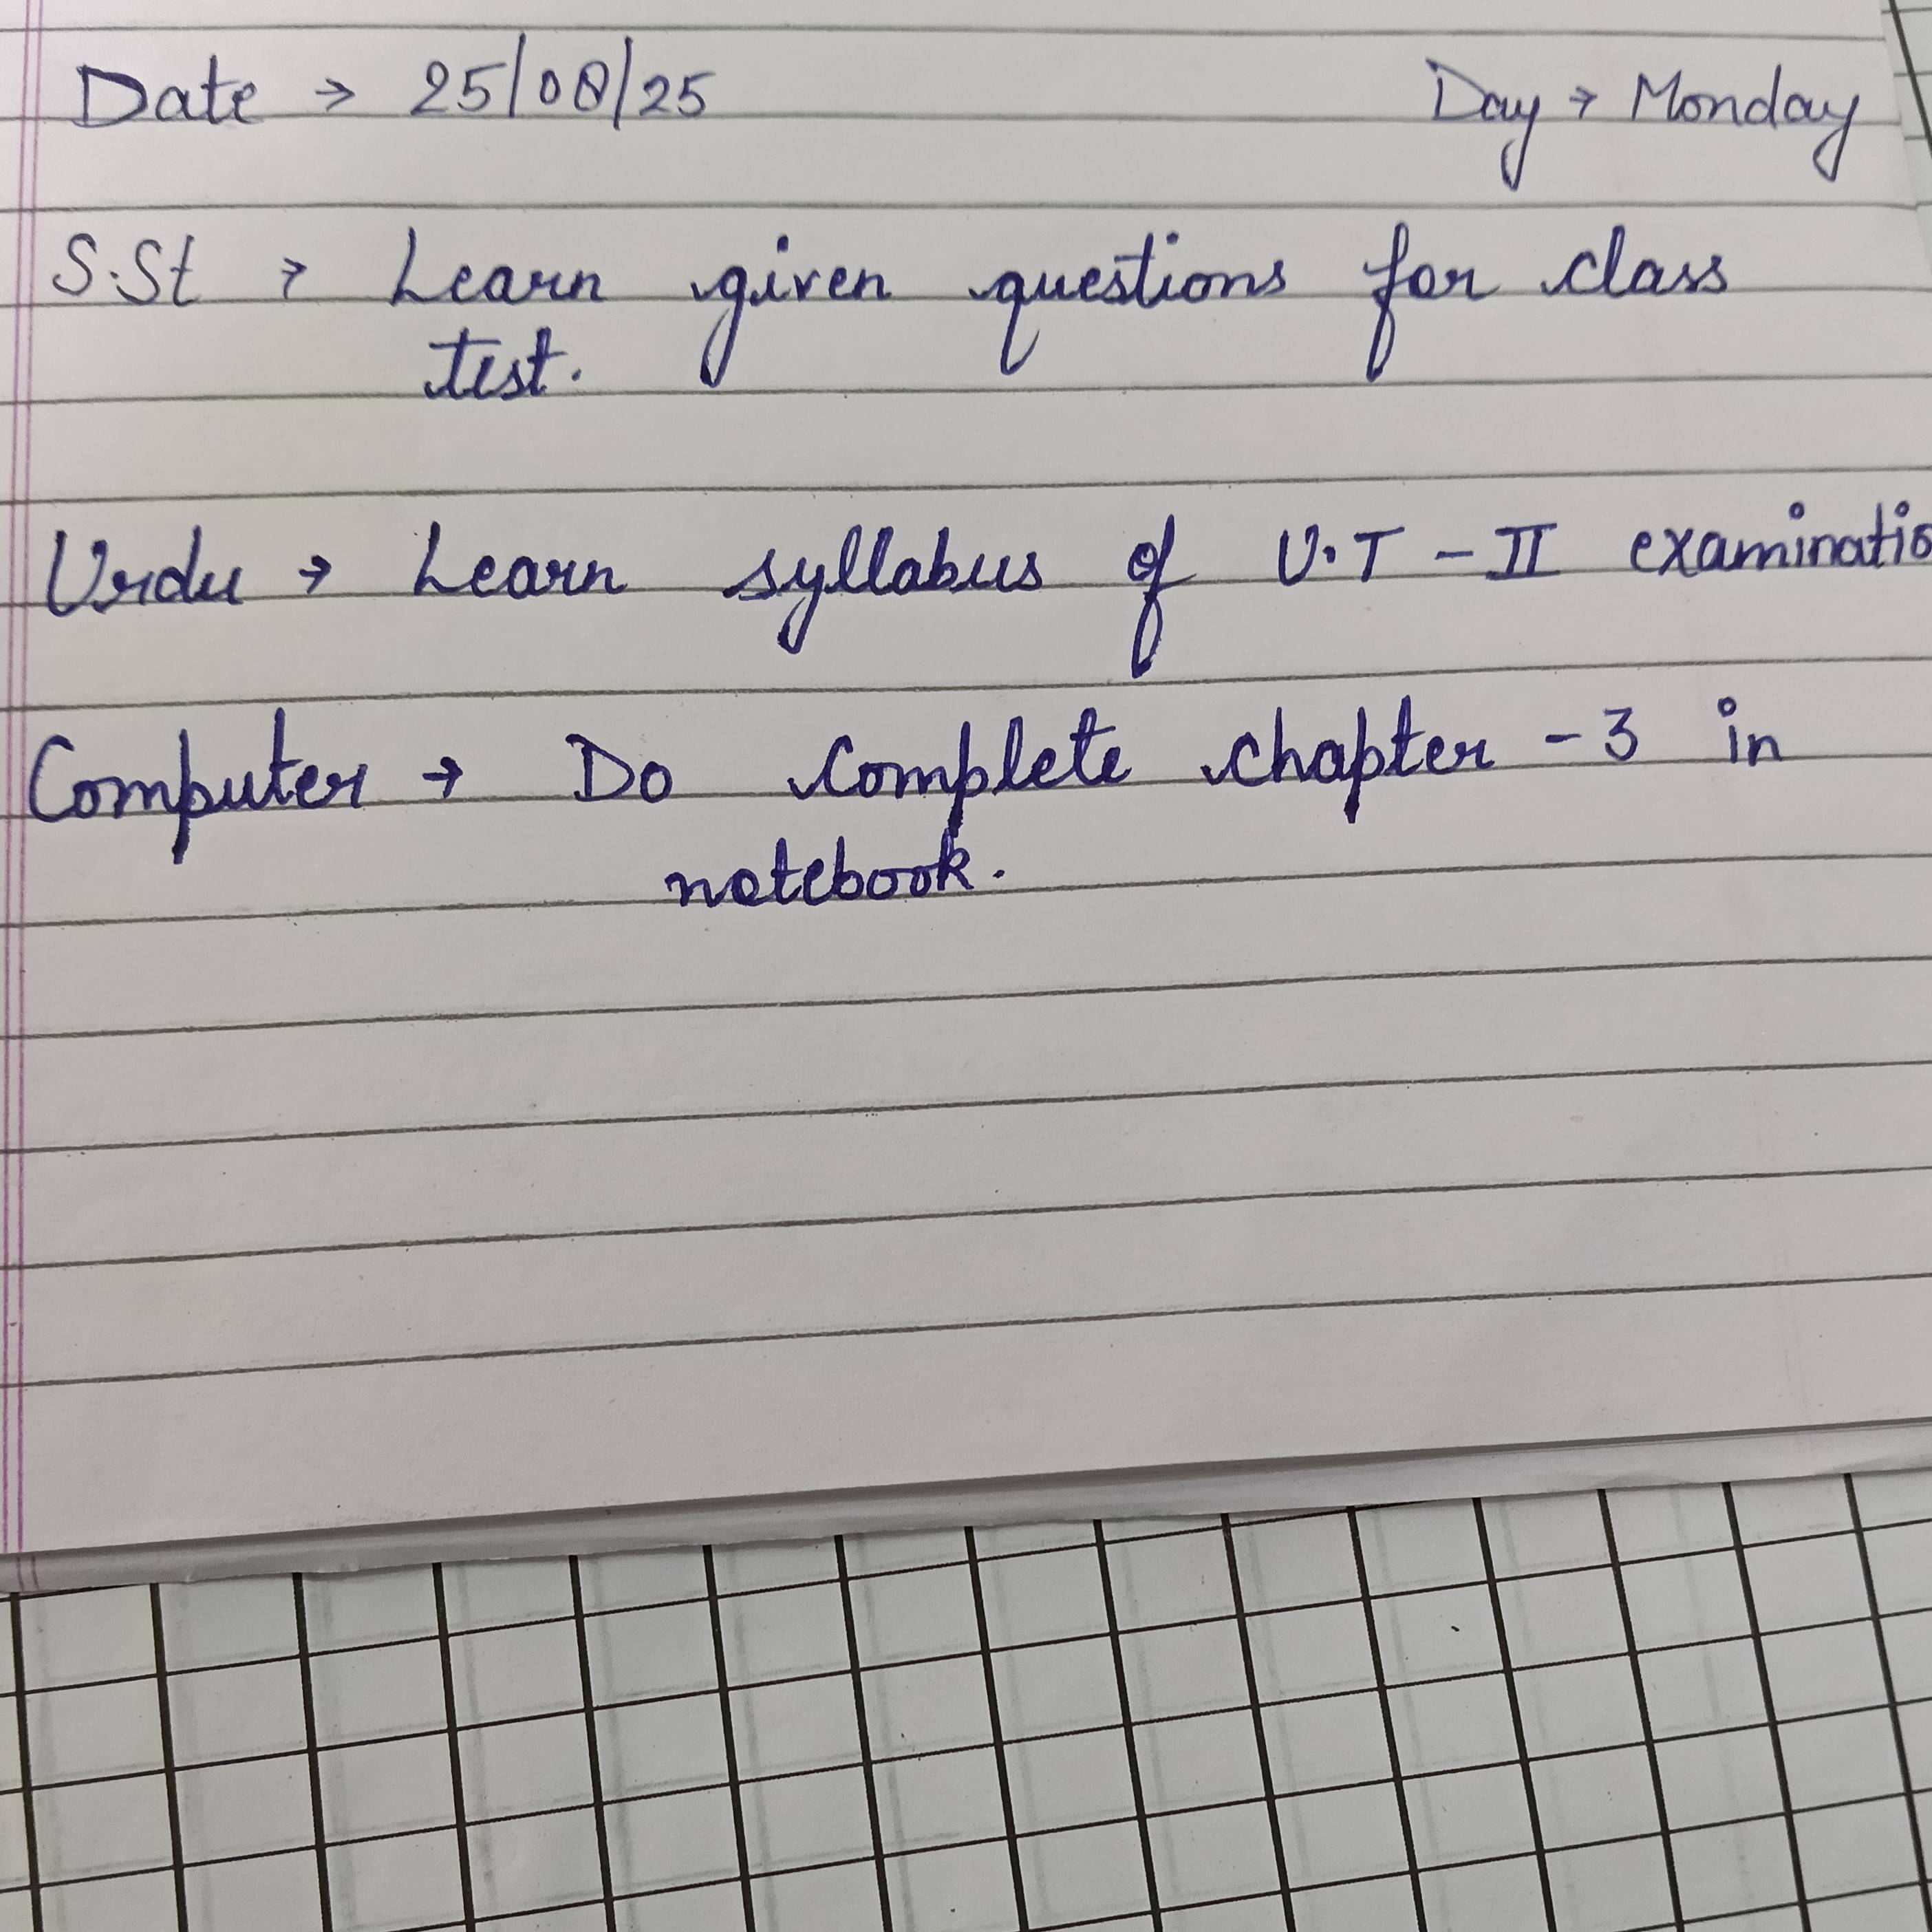 Date → 25/08/25 Day → Monday
S.St → Learn given questions for class
test.
Urdu → Learn syllabus of U.T - II examinatio
Computer → Do complete chapter - 3 in
notebook.